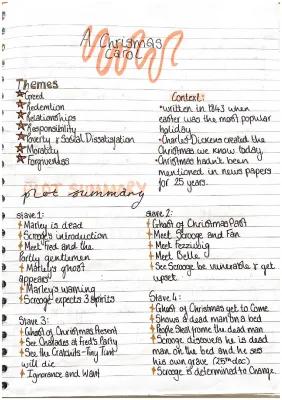 A Chrismas
Carol
Themes
Greed
Redemtion
Relationships
Responsibility
Poverty & Social Dissatisfation
Morality
Forgiveness
Context:
*written in 1843 when
easter was the most popular
holiday
*Charles Dickens created the
Christmas we know today,
*Christmas hadn't been
mentioned in news papers
for 25 years.
plot summary
stave 1:
Marley is dead
Scrooge's introduction
Meet Fred and the
Portly gentlemen
Marley's ghost
appears
Marley's warning
Scrooge expects 3 spirits
stave 2:
Ghost of Christmas Past
Meet Scrooge and Fan
Meet Fezziwig
Meet Belle
See Scrooge be vunerable & get
upset
Stave 3:
Ghost of Christmas Present
See Charades at Fred's Party
See the Cratchits - Tiny Tim
will die
Ignorance and Want
Stave 4:
Ghost of Christmas yet to Come
Shows a dead man on a bed
People steal from the dead man
Scrooge discovers he is dead
man on the bed and he sees
his own grave (25th dec)
Scrooge is determined to Change